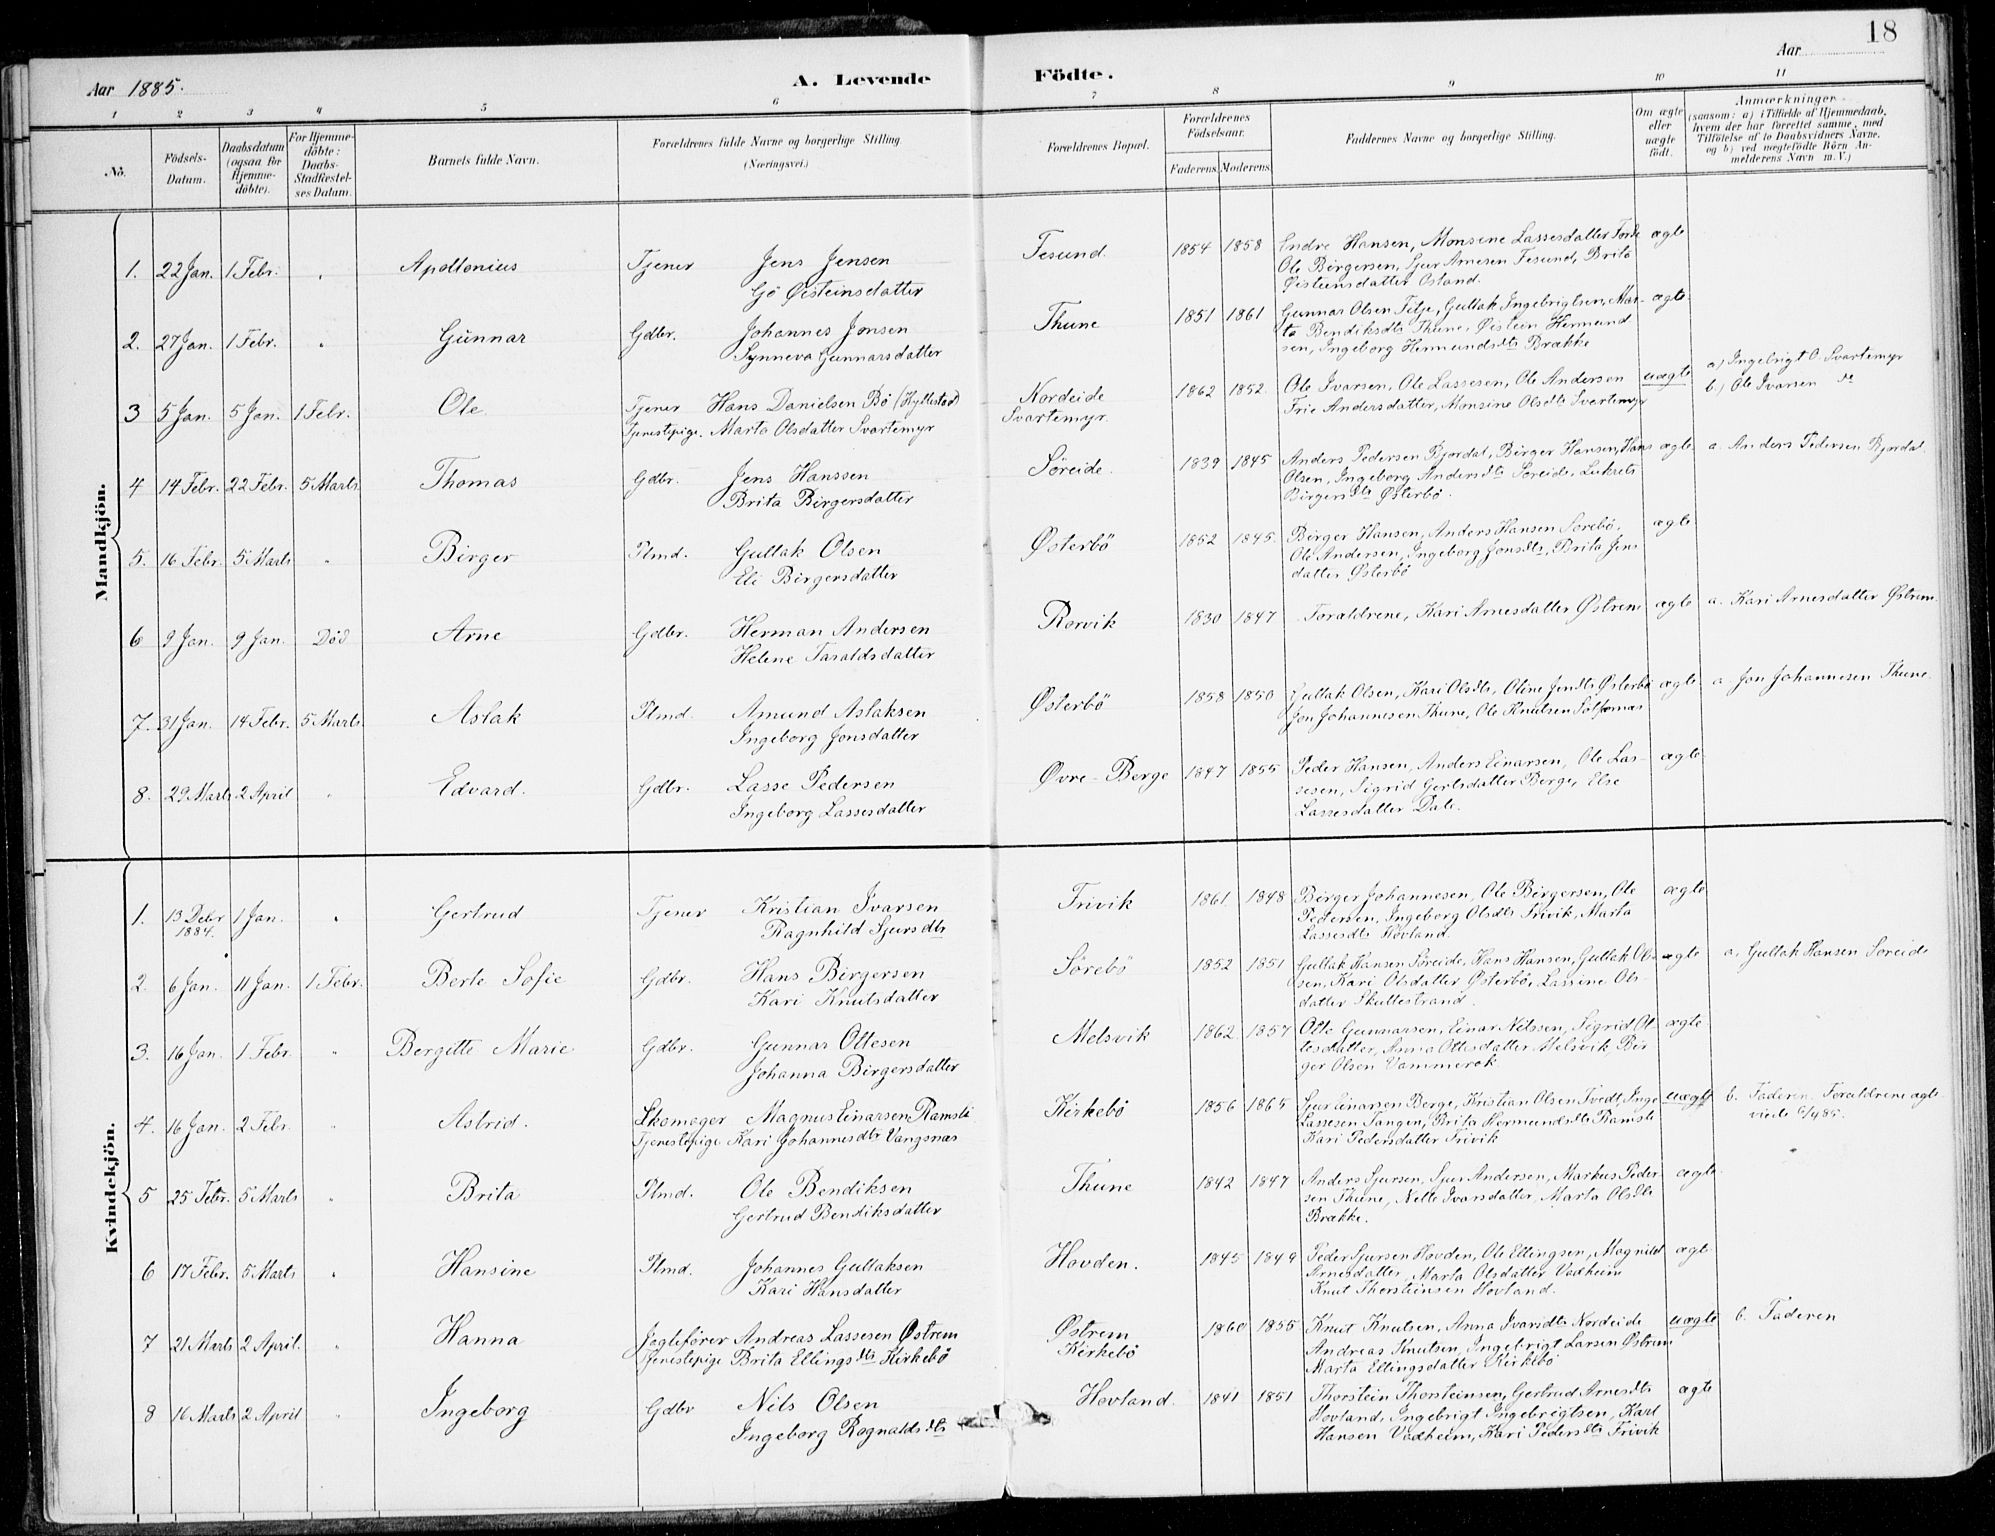 18
Aar 1885.
A. Levende
Födte.
Aar
1 2 3 4 5 6 7 8 9 10 11
No.
Födsels-Datum.
Daabsdatum (ogsaa for Hjemmedöbte).
For Hjemmedöbte: Daabs-Stadfestelses Datum.
Barnets fulde Navn.
Forældrenes fulde Navne og borgerlige Stilling (Næringsvei.)
Forældrenes Bopæl.
Forældrenes Födselsaar.
Faderens. Moderens.
Faddernes Navne og borgerlige Stilling.
Om ægte eller uægte födt.
Anmærkninger (saasom: a) i Tilfælde af Hjemmedaab, hvem der har forrettet samme, med Tilföielse af to Daabsvidners Navne, og b) ved uægtefödte Börn Anmelderens Navn m. V.)
Mandkjön.
1. 22 Jan. 1 Febr. " Apollonius Tjener Jens Jensen Tesund. 1854 1858 Endre Hansen, Monsine Lassesdatter Förde ægte
Gjö Øisteinsdatter Ole Birgersen, Sjur Arnesen Tesund, Brita
Øisteinsdatter Östand.
2. 27 Jan. 1 Febr. " Gunnar Gdbr. Johannes Jonsen Thune 1851 1861 Gunnar Olsen Tilje, Gullak Ingebrigtsen, Mar- ægte
Synneva Gunnarsdatter ta Bendiksdtr Thune, Øistein Hermund
sen, Ingeborg Hermundsdtr Brække
3 5 Jan. 5 Jan. 1 Febr. Ole Tjener Hans Danielsen Bö (Hyllestad) Nordeide 1862 1852. Ole Ivarsen, Ole Lassesen, Ole Andersen uægte a) Ingebrigt O. Svartemyr
Tjenestepige. Marta Olsdatter Svartemyr Svartemyr. Andersdatter, Monsine Olsdtr Svartemyr b.) Ole Ivarsen do
4 14 Febr. 22 Febr. 5 Marts Thomas Gdbr. Jens Hanssen Söreide. 1839 1845 Anders Pedersen Bjordal, Birger Hansen, Hans ægte a. Anders Pedersen Bjordal
Brita Birgersdatter Olsen, Ingeborg Andersdtr Söreide, Luksets
Birgersdtr Østerbö.
5. 16 Febr. 5 Marts " Birger Plmd. Gullak Olsen Østerbö 1852 1845. Birger Hansen, Anders Hansen Sörebö, ægte
Eli Birgersdatter Ole Andersen, Ingeborg Jonsdtr, Brita Jens
datter Østerbö
6 9 Jan. 9 Jan. Död Arne Gdbr. Herman Andersen Rorvik 1830 1847 Forældrene, Kari Arnesdatter Østrem ægte a. Kari Arnesdatter Østrem.
Helene Taraldsdatter
7. 31 Jan. 14 Febr. 5 Marts Aslak Plmd. Amund Aslaksen Østerbö 1858 1850 Gullak Olsen, Kari Olsdtr, Oline Jensdtr Østerbö ægte a Jon Johannesen Thune
Ingeborg Jonsdatter Jon Johannesen Thune, Ole Knutsen
8. 29 Marts 2 April " Edvard. Gdbr. Lasse Pedersen Øvre-Berge 1847 1855 Peder Hansen, Anders Einarsen, Ole Las- ægte
Ingeborg Lassesdatter sesen, Sigrid Gertsdatter Berge, Else
Lassesdatter Dale.
Kvindekjön.
1. 13 Debr 1884. 1 Jan. " Gertrud Tjener Kristian Ivarsen Trivik 1861 1848 Birger Johannesen, Ole Birgersen, Ole ægte
Ragnhild Sjursdtr Pedersen, Ingeborg Olsdtr Trivik, Marta
Lassesdtr Hovland.
2. 6 Jan. 11 Jan. 1 Febr. Berte Sofie Gdbr. Hans Birgersen Sörebö 1852 1851 Gullak Hansen Söreide, Hans Hansen, Gullak Ol- ægte a. Gullak Hansen Söreide
Kari Knutsdatter sen, Kari Olsdatter Østerbö, Lassine Ols-
datter Skuttestrand.
3. 16 Jan. 1 Febr. " Bergitte Marie Gdbr. Gunnar Ottesen Melsvik 1862. 1857 Otte Gunnarsen, Einar Nilssen, Sigrid Ot- ægte
Johanna Birgersdatter tesdatter, Anna Ottesdatter Melsvik, Bir
ger Olsen Vammerok
4. 16 Jan. 2 Febr. " Astrid. Skomager Magnus Einarsen Ramsli Kirkebö 1856 1865 Sjur Einarsen Berge, Kristian Olsen Tvedt, Inge uægte b. Faderen. Forældrene ægte-
Tjenestepige Kari Johannesdtr Vangsnæs Lassesen Tangen, Brita Hermundsdtr Ramsli viede 6/4 85.
Kari Pedersdatter Trivik
5 25 Febr. 5 Marts " Brita Plmd. Ole Bendiksen Thune 1842 1847 Anders Sjursen, Sjur Andersen, Markus Peder- ægte
Gertrud Bendiksdatter sen Thune, Nelle Ivarsdatter, Marta Olsdtr
Brække.
6 17 Febr. 5 Marts " Hansine Plmd. Johannes Gullaksen Hovden. 1845 1849 Peder Sjursen Hovden, Ole Ellingsen, Magnild ægte
Kari Hansdatter Arnesdatter, Marta Olsdatter Vadheim
Knut Thorsteinsen Hovland.
7 21 Marts 2 April. " Hanna Jægtefører Andreas Lassesen Østrem Østrem 1860 1855 Knut Knutsen, Anna Ivarsdtr Nordeide uægte b. Faderen
Tjenestepige Brita Ellingsdtr Kirkebö Kirkebö Andreas Knutsen, Ingebrigt Larsen Østrem
Marta Ellingsdatter Kirkebö
8 16 Marts 2 April " Ingeborg Gdbr Nils Olsen Hovland. 1841 1851 Thorstein Thorsteinsen, Gertrud Arnesdtr ægte
Ingeborg Rognaldsdtr Hovland, Ingebrigt Ingebrigtsen, Karl
Hansen Vadheim, Kari Pedersdtr Trivik